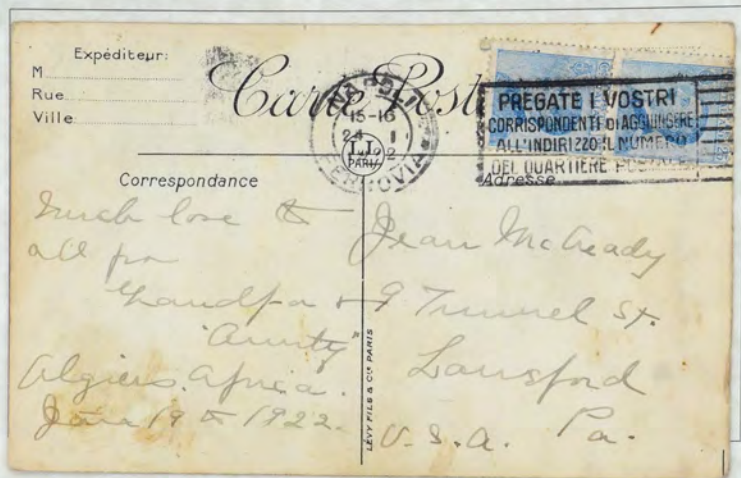 Expéditeur:
M
Rue
Ville
Carte Postale
NAPOLI
15-16
24 1
FERROVIA
L.L.
PARIS
PREGATE I VOSTRI
CORRISPONDENTI DI AGGIUNGERE
ALL'INDIRIZZO IL NUMERO
DEL QUARTIERE POSTALE
Correspondance
Adresse
Much love to
all from
Grandpa &
Aunty
Algiers. Africa.
Jan 19th 1922.
LÉVY FILS & Cie PARIS
Jean McCready
9 Tunnel St.
Lansford
U.S.A. Pa.